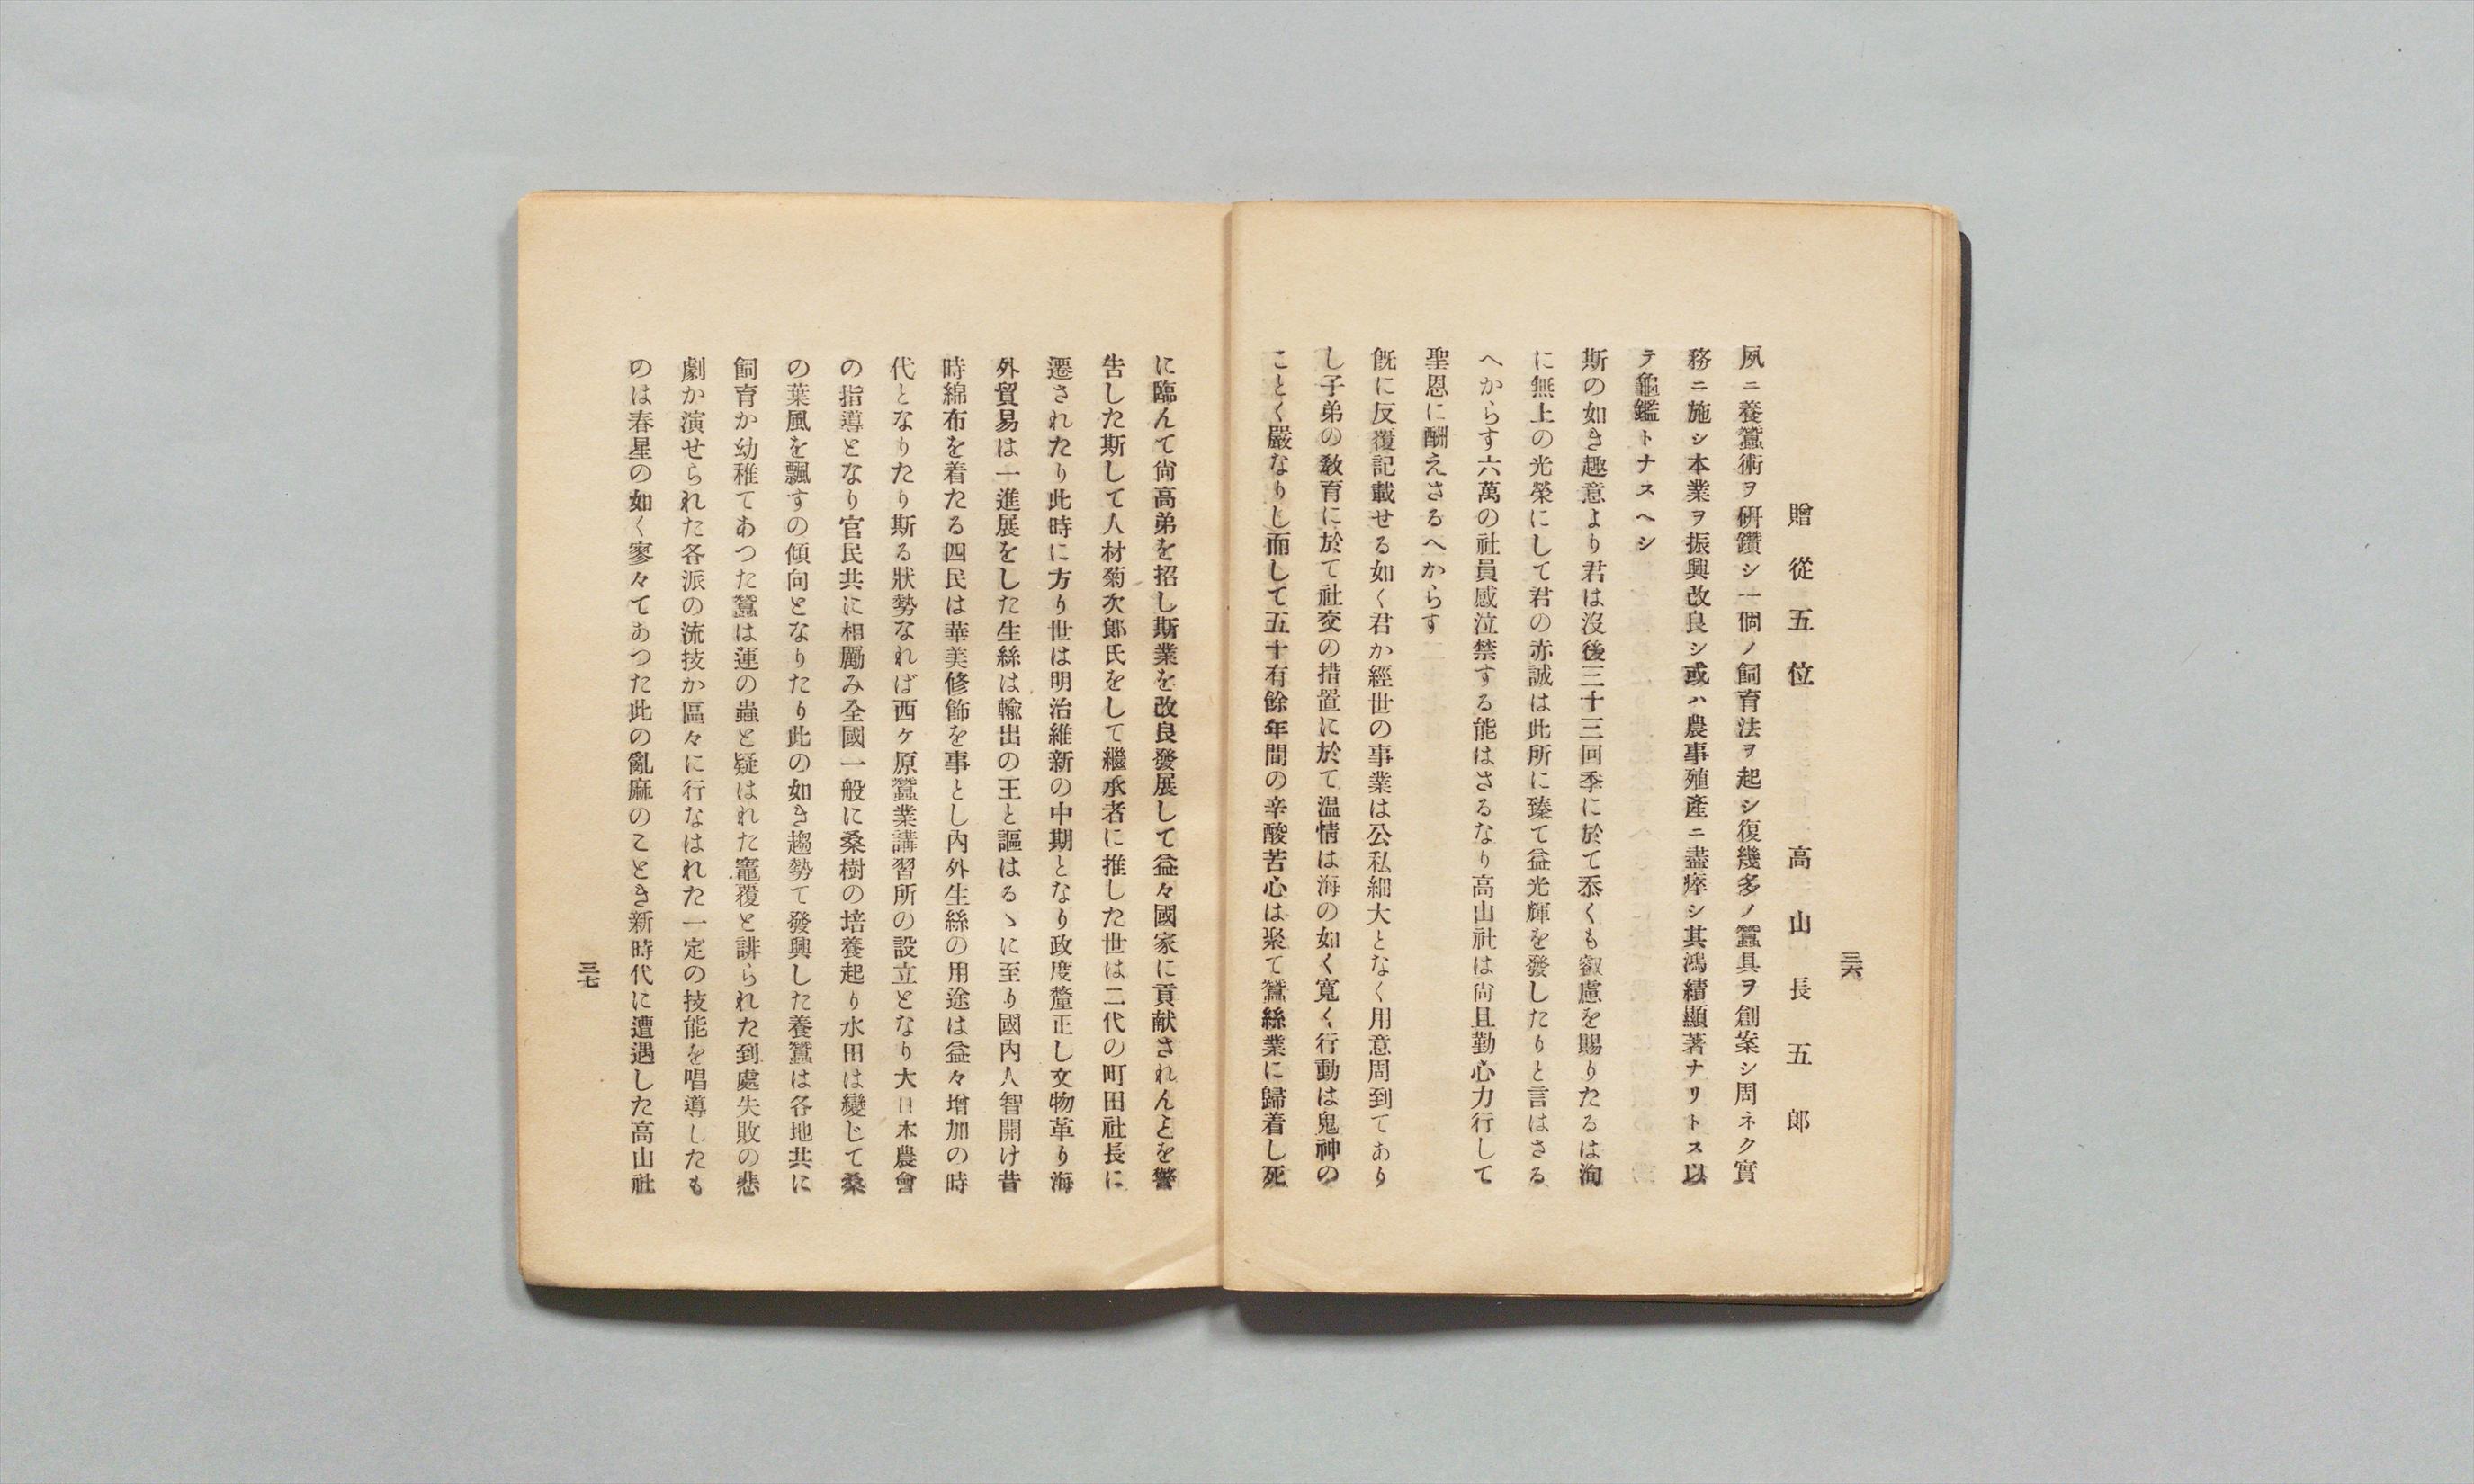 三六
贈從五位　高山長五郎
夙ニ養蠶術ヲ硏鑽シ一個ノ飼育法ヲ起シ復幾多ノ蠶具ヲ創案シ周ネク實
務ニ施シ本業ヲ振興改良シ或ハ農事殖產ニ盡瘁シ其鴻績顯著ナリトス以
テ龜鑑トナスヘシ
斯の如き趣意より君は沒後三十三回季に於て忝くも叡慮を賜りたるは洵
に無上の光榮にして君の赤誠は此所に臻て益光輝を發したりと言はさる
へからす六萬の社員感泣禁する能はさるなり高山社は尙且勤心力行して
聖恩に酬えさるへからす
既に反覆記載せる如く君か經世の事業は公私細大となく用意周到てあり
し子弟の敎育に於て社交の措置に於て温情は海の如く寬く行動は鬼神の
ことく嚴なりし而して五十有餘年間の辛酸苦心は聚て蠶絲業に歸着し死
に臨んて尙高弟を招し斯業を改良發展して益々國家に貢献されんとを警
告した斯して人材菊次郞氏をして繼承者に推した世は二代の町田社長に
遷されたり此時に方り世は明治維新の中期となり政度釐正し文物革り海
外貿易は一進展をした生絲は輸出の王と謳はるゝに至り國內人智開け昔
時綿布を着たる四民は華美修飾を事とし內外生絲の用途は益々增加の時
代となりたり斯る狀勢なれば西ケ原蠶業講習所の設立となり大日本農會
の指導となり官民共に相勵み全國一般に桑樹の培養起り水田は變じて桑
の葉風を飄すの傾向となりたり此の如き趨勢て發興した養蠶は各地共に
飼育か幼稚てあつた蠶は運の蟲と疑はれた竈覆と誹られた到處失敗の悲
劇か演せられた各派の流技か區々に行なはれた一定の技能を唱導したも
のは春星の如く寥々てあつた此の亂麻のことき新時代に遭遇した高山社
三七